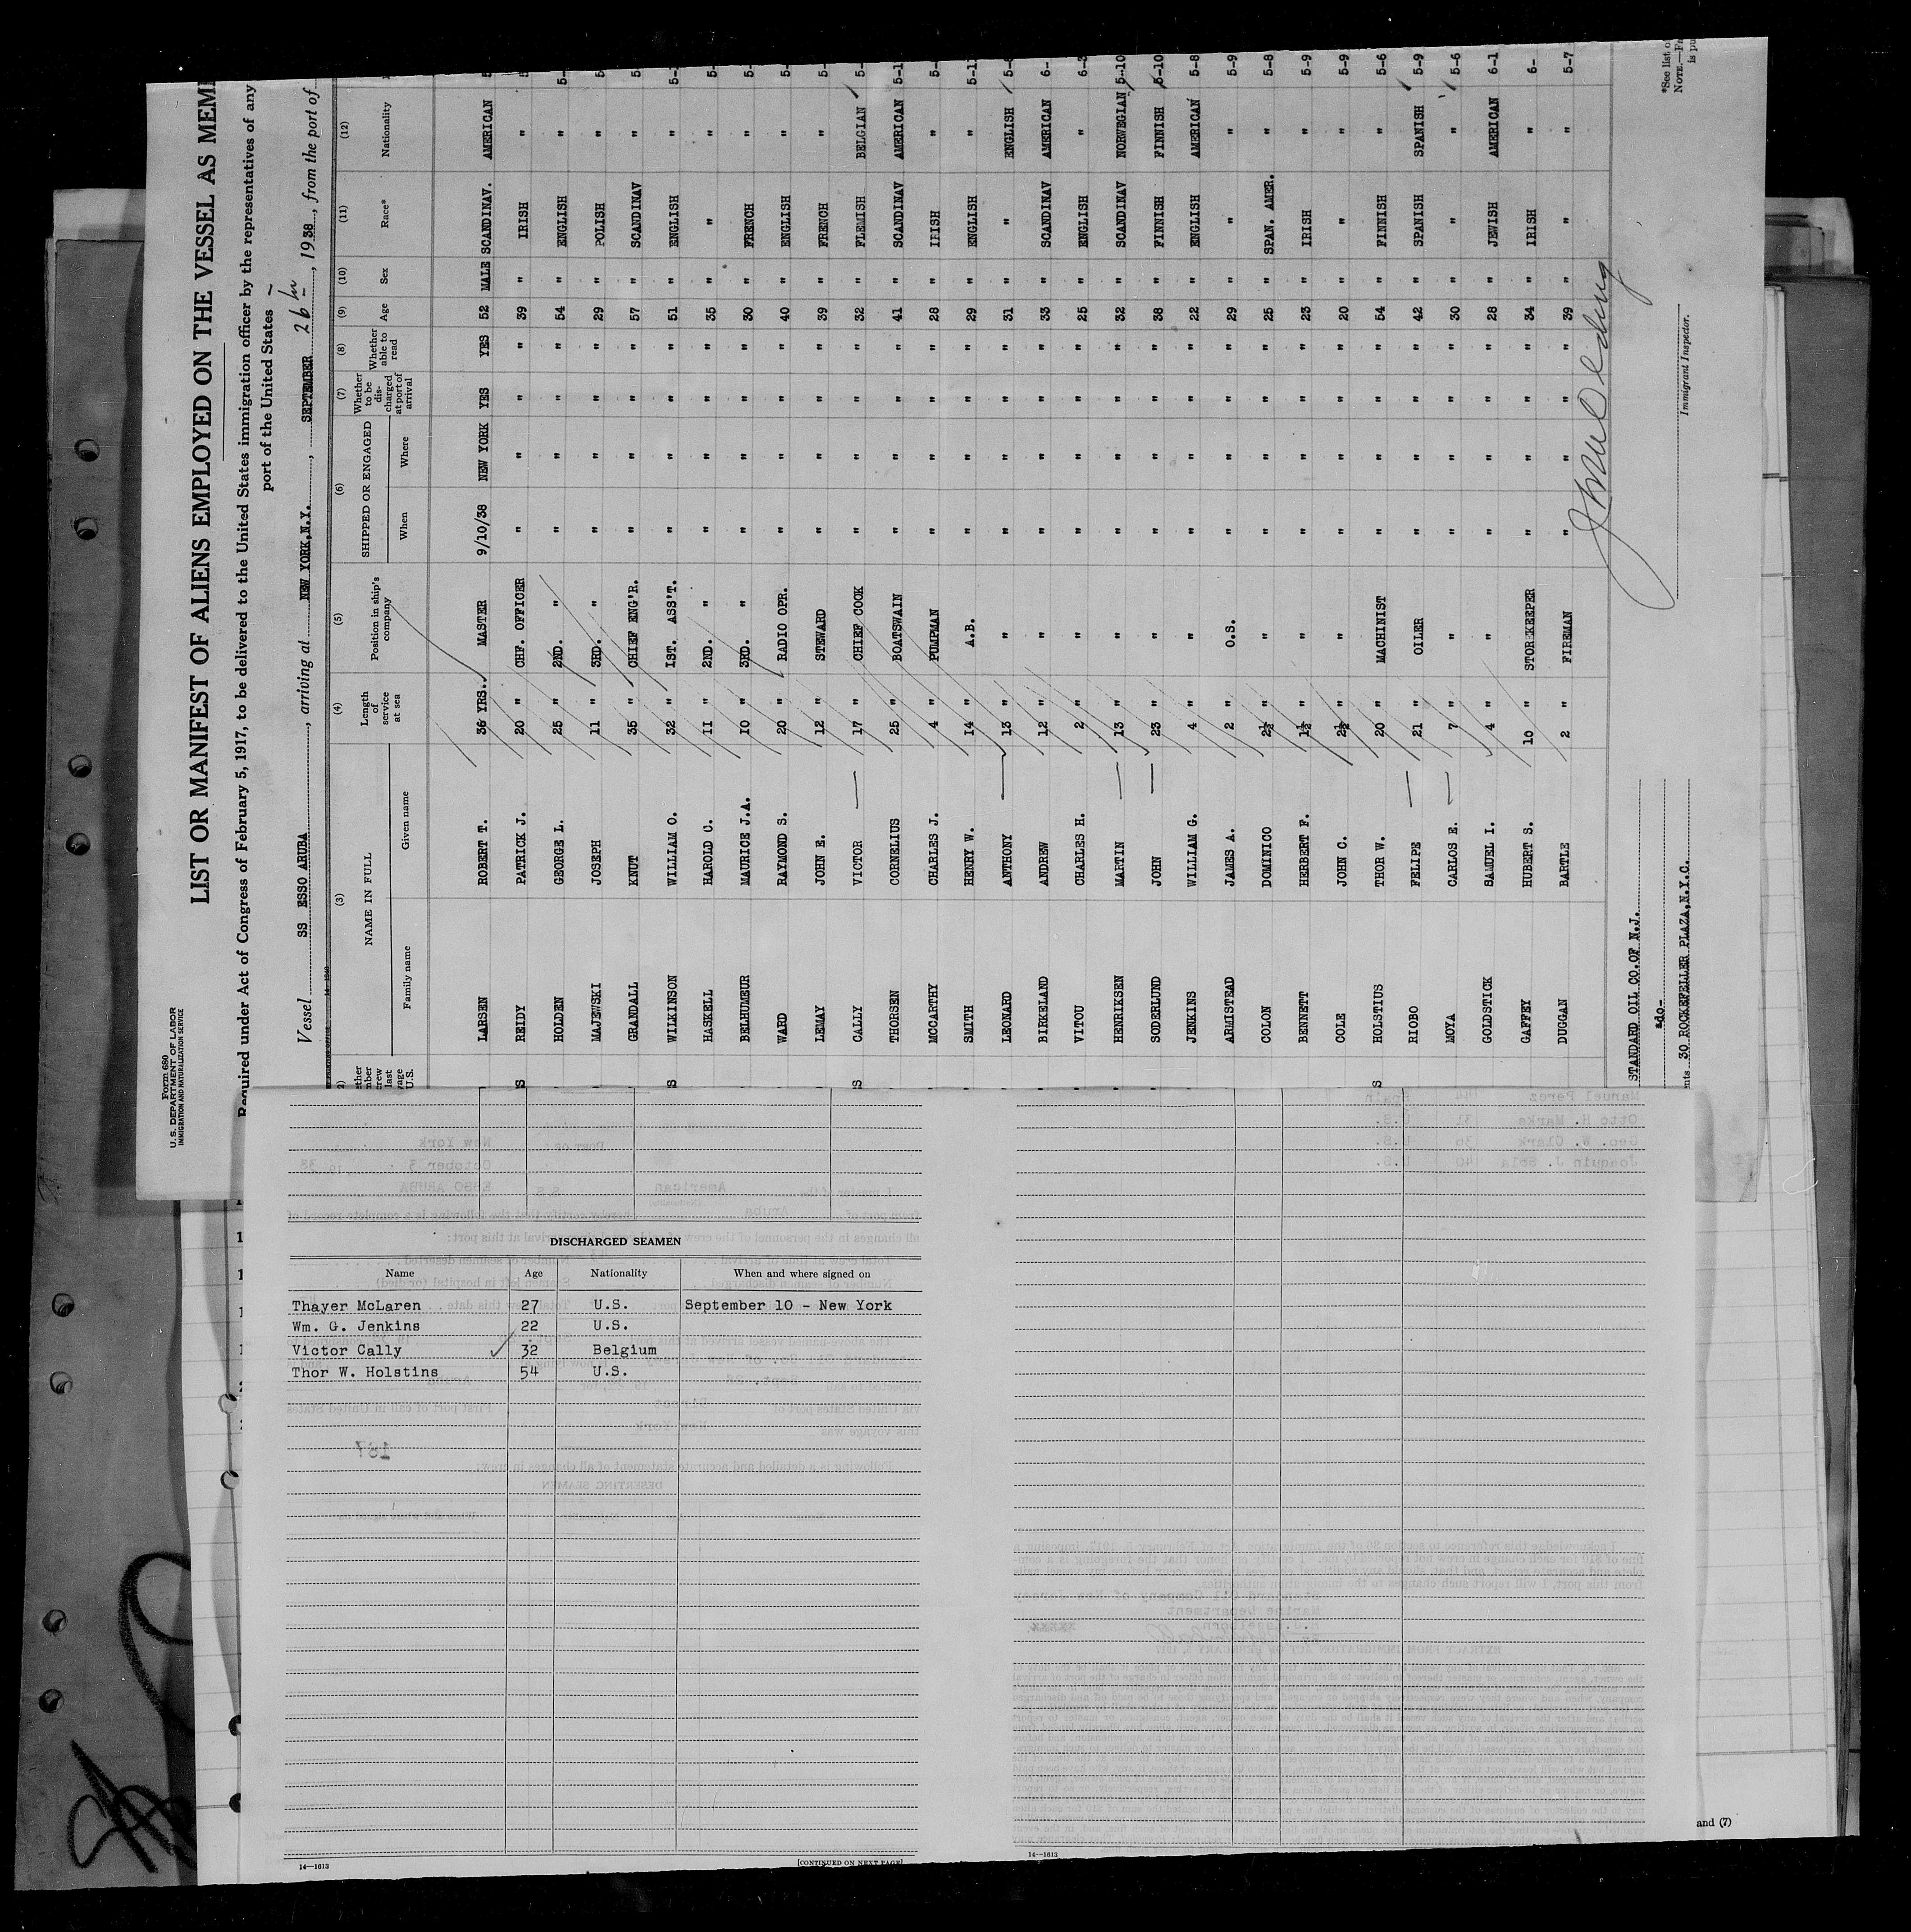 Form 680
U. S. DEPARTMENT OF LABOR
IMMIGRATION AND NATURALIZATION SERVICE
LIST OR MANIFEST OF ALIENS EMPLOYED ON THE VESSEL AS MEM
Required under Act of Congress of February 5, 1917, to be delivered to the United States immigration officer by the representatives of any
port of the United States
Vessel SS ESSO ARUBA, arriving at NEW YORK,N.Y., SEPTEMBER 26th, 1938, from the port of
(3) (4) (5) (6) (7) (8) (9) (10) (11) (12)
NAME IN FULL Length of service at sea Position in ship's company SHIPPED OR ENGAGED Whether to be discharged at port of arrival Whether able to read Age Sex Race* Nationality
Family name Given name When Where
LARSEN ROBERT T. 36 YRS. MASTER 9/10/38 NEW YORK YES YES 52 MALE SCANDINAV. AMERICAN
REIDY PATRICK J. 20 " CHF. OFFICER " " " " 39 " IRISH "
HOLDEN GEORGE L. 25 " 2ND. " " " " " 54 " ENGLISH "
MAJEWSKI JOSEPH 11 " 3RD. " " " " " 29 " POLISH "
GRANDALL KNUT 35 " CHIEF ENG'R. " " " " 57 " SCANDINAV "
WILKINSON WILLIAM O. 32 " 1ST. ASS'T. " " " " 51 " ENGLISH "
HASKELL HAROLD C. 11 " 2ND. " " " " " 35 " " "
BELHUMEUR MAURICE J.A. 10 " 3RD. " " " " " 30 " FRENCH "
WARD RAYMOND S. 20 " RADIO OPR. " " " " 40 " ENGLISH "
LEMAY JOHN E. 12 " STEWARD " " " " 39 " FRENCH "
CALLY VICTOR 17 " CHIEF COOK " " " " 32 " FLEMISH BELGIAN
THORSEN CORNELIUS 25 " BOATSWAIN " " " " 41 " SCANDINAV AMERICAN
MCCARTHY CHARLES J. 4 " PUMPMAN " " " " 28 " IRISH "
SMITH HENRY W. 14 " A.B. " " " " 29 " ENGLISH "
LEONARD ANTHONY 13 " " " " " " 31 " " ENGLISH
BIRKELAND ANDREW 12 " " " " " " 33 " SCANDINAV AMERICAN
VITOU CHARLES H. 2 " " " " " " 25 " ENGLISH "
HENRIKSEN MARTIN 13 " " " " " " 32 " SCANDINAV NORWEGIAN 5-10
SODERLUND JOHN 23 " " " " " " 38 " FINNISH FINNISH 5-10
JENKINS WILLIAM G. 4 " " " " " " 22 " ENGLISH AMERICAN 5-8
ARMISTEAD JAMES A. 2 " O.S. " " " " 29 " " " 5-9
COLON DOMINICO 2½ " " " " " " 25 " SPAN. AMER. " 5-8
BENNETT HERBERT F. 1½ " " " " " " 23 " IRISH " 5-9
COLE JOHN C. 2½ " " " " " " 20 " " " 5-9
HOLSTIUS THOR W. 20 " MACHINIST " " " " 54 " FINNISH " 5-6
RIOBO FELIPE 21 " OILER " " " " 42 " SPANISH SPANISH 5-9
MOYA CARLOS E. 7 " " " " " " 30 " " " 5-6
GOLDSTICK SAMUEL I. 4 " " " " " " 28 " JEWISH AMERICAN 6-1
GAFFEY HUBERT S. 10 " STOREKEEPER " " " " 34 " IRISH " 6-
DUGGAN BARTLE 2 " FIREMAN " " " " 39 " " " 5-7
STANDARD OIL CO.OF N.J.
-do-
30 ROCKEFELLER PLAZA,N.Y.C.
Immigrant Inspector.
*See list o
NOTE.—Fa
is pu
DISCHARGED SEAMEN
Name Age Nationality When and where signed on
Thayer McLaren 27 U.S. September 10 - New York
Wm. G. Jenkins 22 U.S.
Victor Cally 32 Belgium
Thor W. Holstins 54 U.S.
14—1613
[CONTINUED ON NEXT PAGE]
14—1613
and (7)